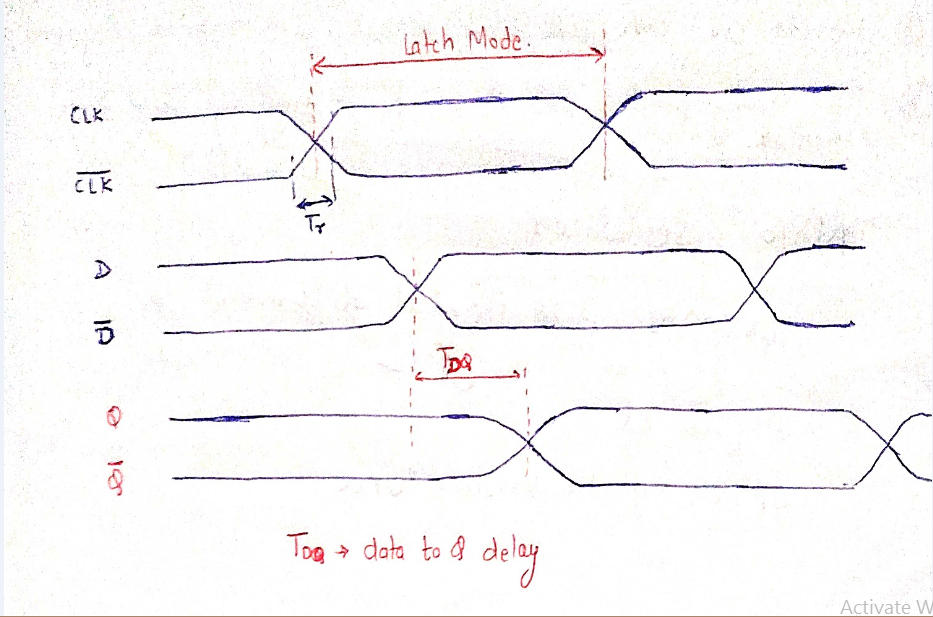 Latch Mode.
CLK
C̅L̅K̅
Tr
D
D̅
TDQ
Q
Q̅
TDQ → data to Q delay
Activate W